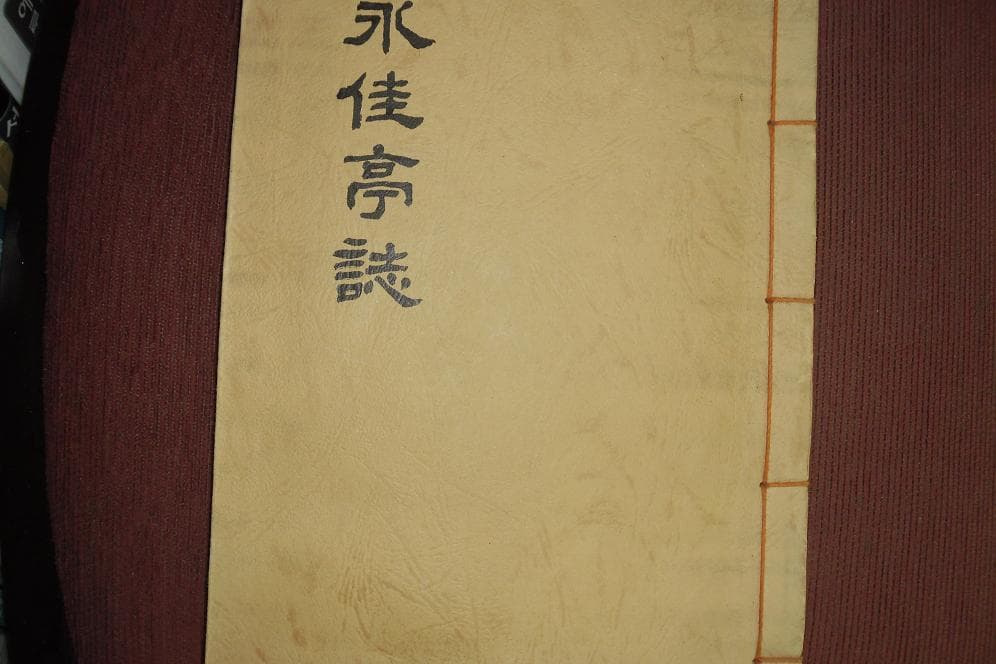 永佳亭誌